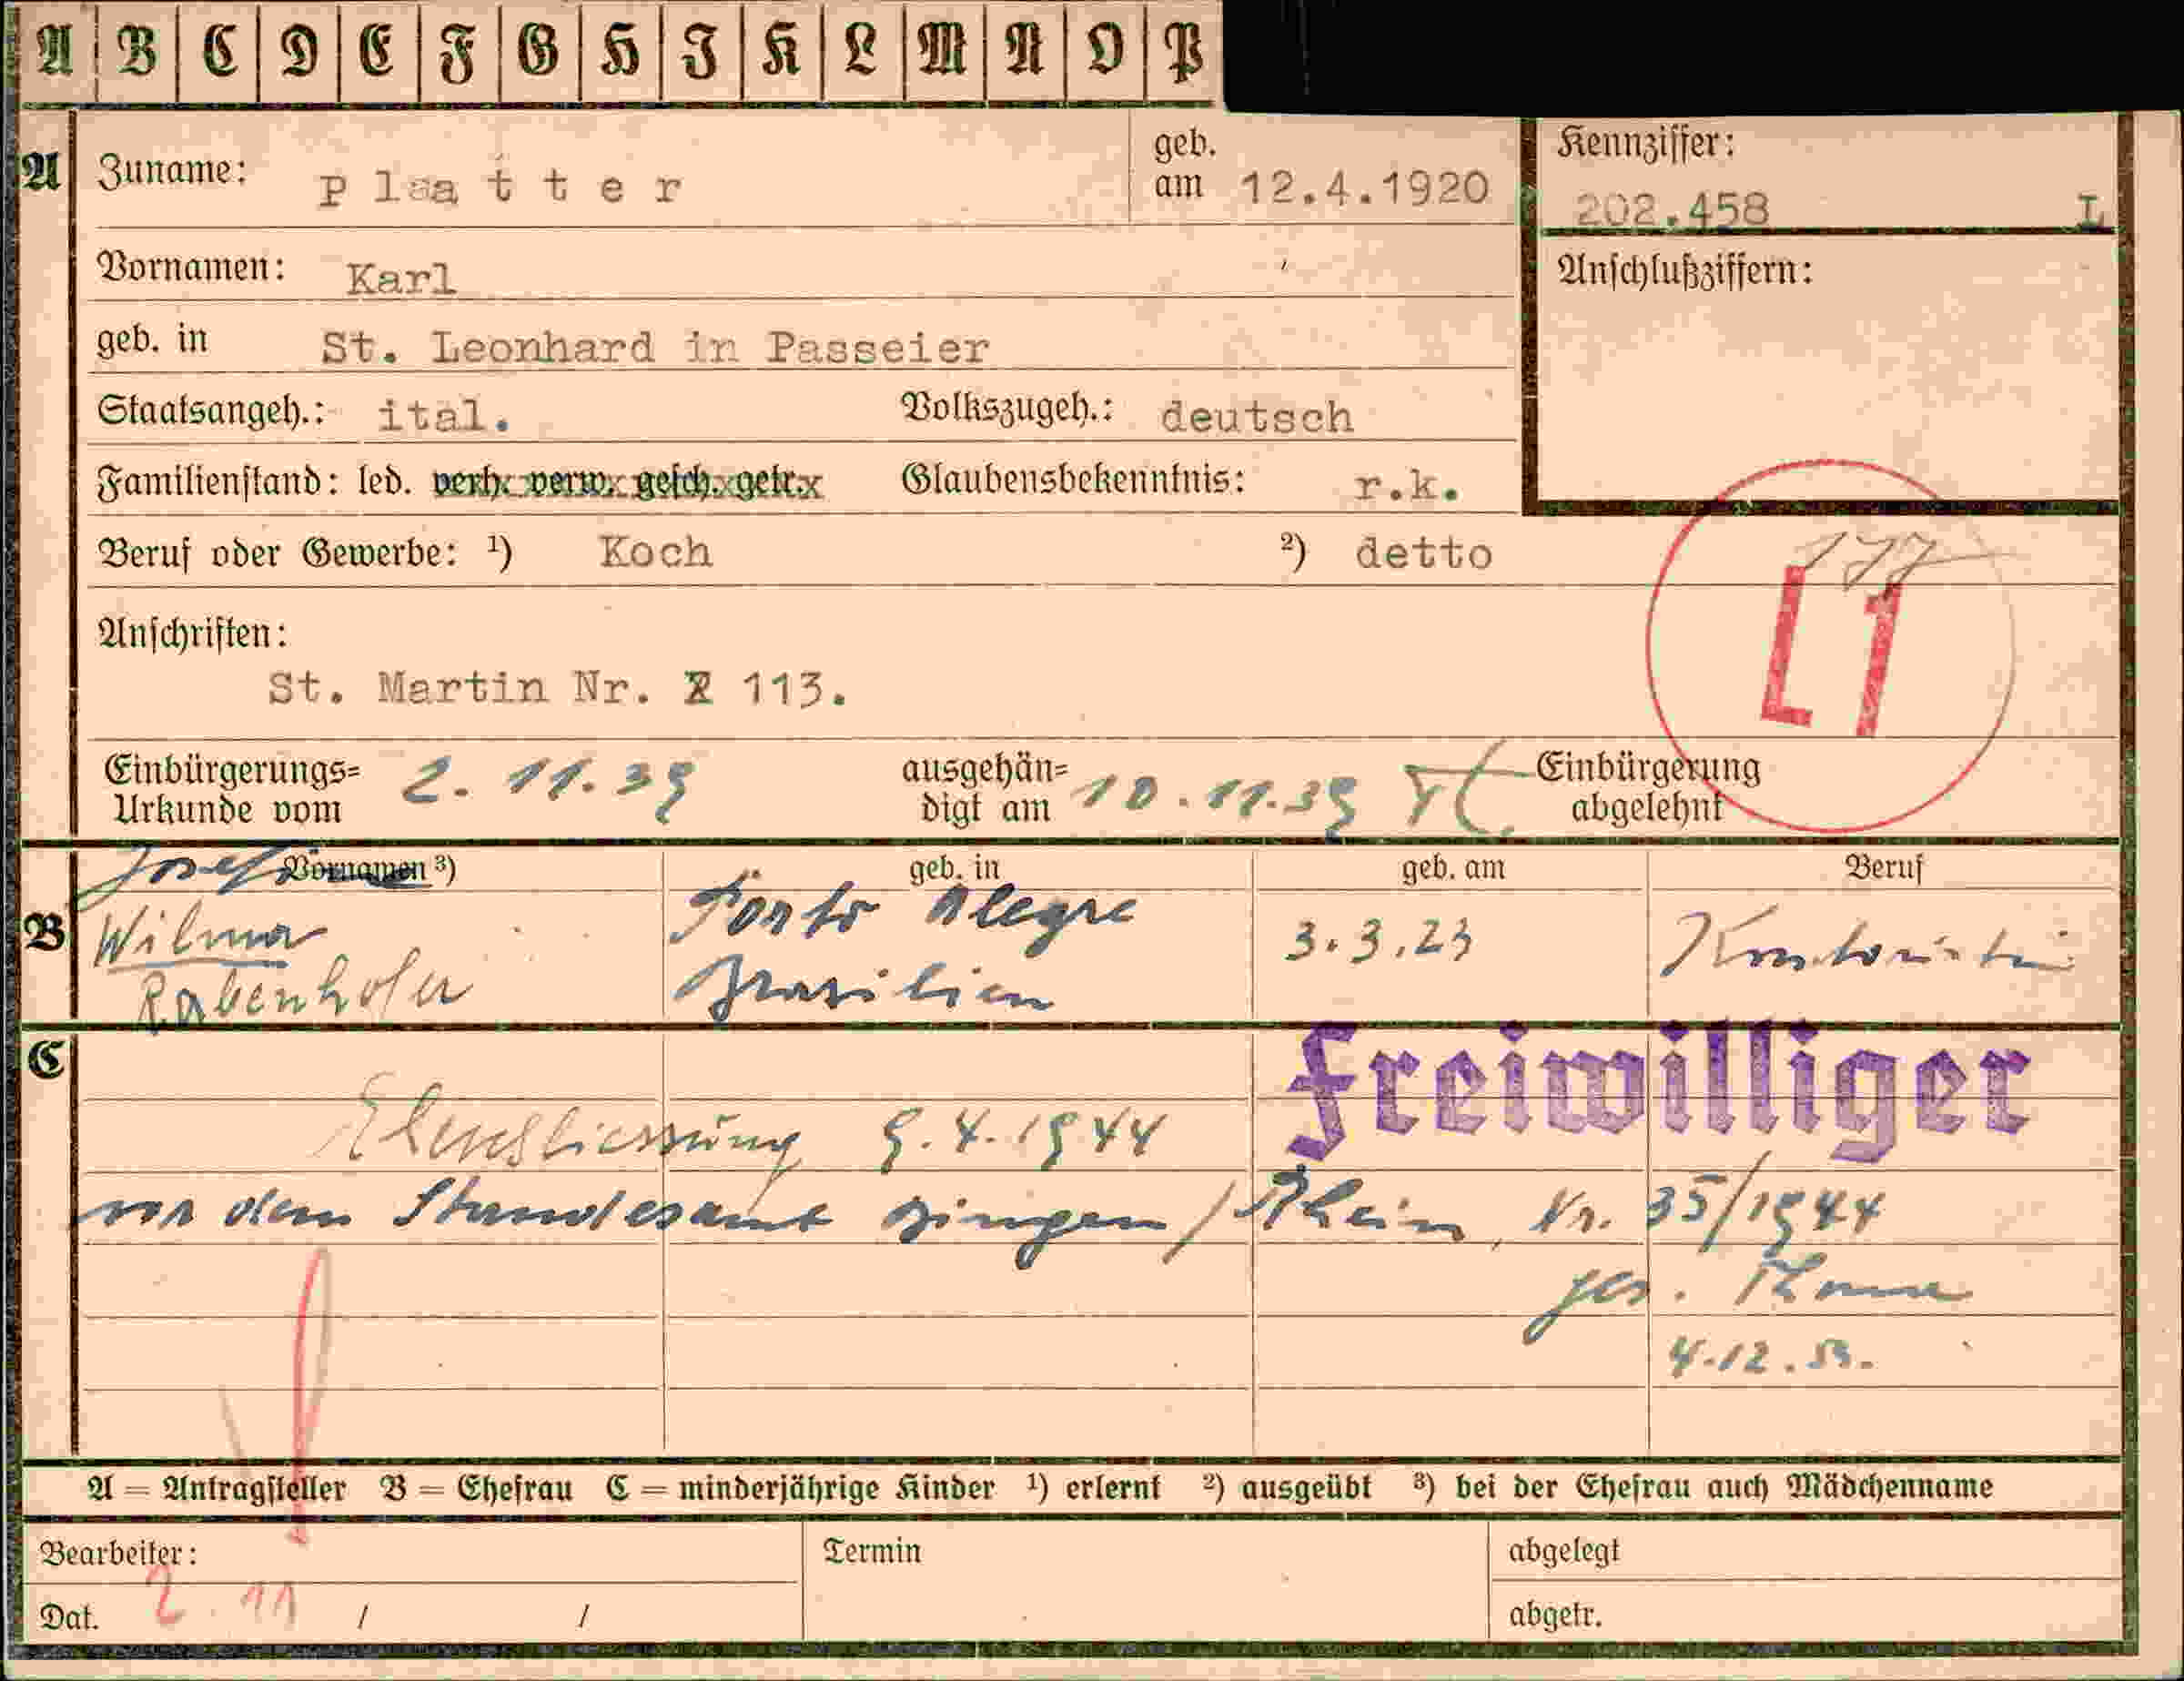 A B C D E F G H I K L M N O P
A Zuname: Platter geb. am 12.4.1920 Kennziffer: 202.458 L
Vornamen: Karl Anschlußziffern:
geb. in St. Leonhard in Passeier
Staatsangeh.: ital. Volkszugeh.: deutsch
Familienstand: led. verh. verw. gesch. getr. Glaubensbekenntnis: r.k.
Beruf oder Gewerbe: ¹) Koch ²) detto
177
L1
Anschriften:
St. Martin Nr. 113.
Einbürgerungs= Urkunde vom 2. 11. 39 ausgehän= digt am 10. 11. 39 Einbürgerung abgelehnt
Vornamen ³) geb. in geb. am Beruf
B Josefine Porto Alegre 3.3.23 Kontoristin
Wilma Brasilien
Rabenhofer
C Freiwilliger
Eheschliessung 9. 4. 1944
vor dem Standesamt Bingen / Rhein, Nr. 35/1944
gez. Thoma
4.12.
A = Antragsteller B = Ehefrau C = minderjährige Kinder ¹) erlernt ²) ausgeübt ³) bei der Ehefrau auch Mädchenname
Bearbeiter: Termin abgelegt
Dat. 2. 11 / / abgetr.